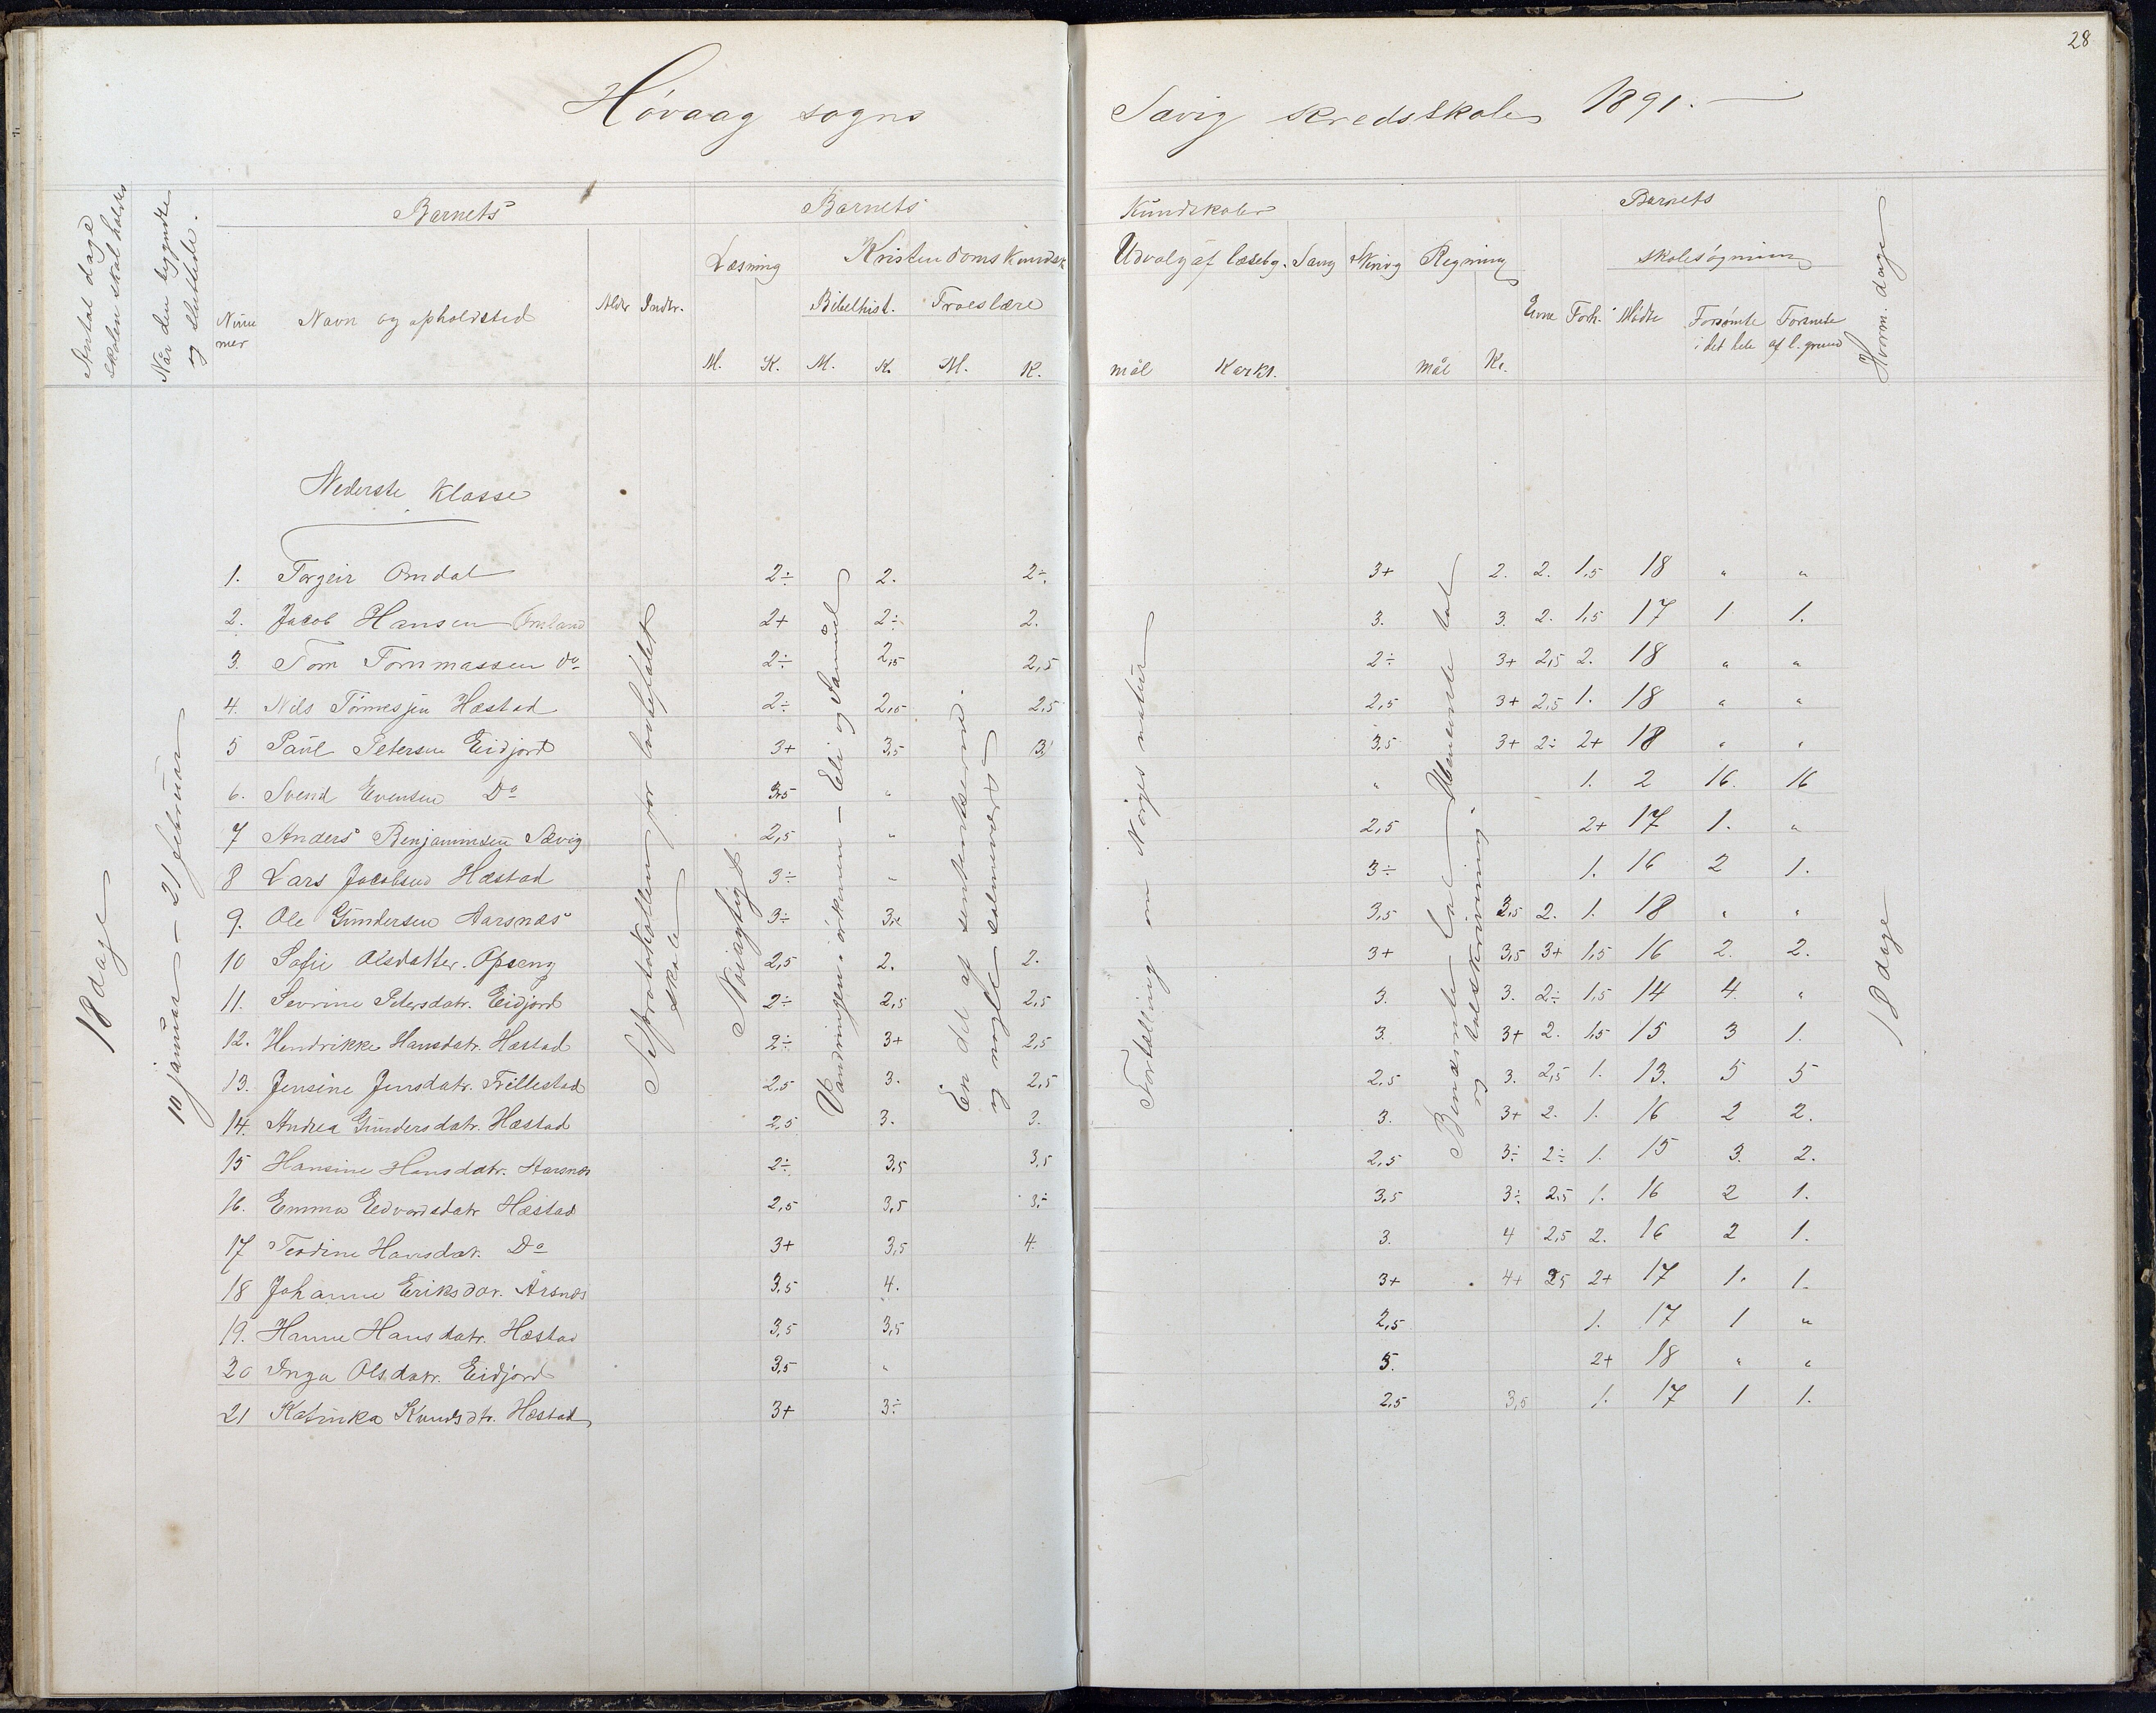 28
Høvaag sogns
Sævig kredsskole 1891.
Antal dage skolen skal holdes
Når den begyndte og sluttede.
Barnets
Barnets
Kundskaber
Barnets
Nummer
Navn og opholdsted
Alder
Indtr.
Læsning
Kristendomskundsk
Udvalg af læsebg.
Sang
Skrivg
Regning
skolesøgning
Bibelhist.
Troeslære
Evne
Forh.
Mødte
Forsømte i det hele
Forsømte af l. grund
Hvorm. dage
M. K. M. K. M. K.
mål Karkt. mål Kr.
Nederste Klasse
18 dage
10 januar – 21 februar
Se protokollen for lovbefalet skole
Nøiagtigt
Vandringen i ørkenen – Eli og Samuel
En del af
og nogle salmevers
Fortælling om Norges natur
Benævnte tal – Ubenævnte tal
og talskrivning
18 dage
1. Torgeir Omdal 2÷ 2. 2÷ 3+ 2. 2. 1,5 18 " "
2. Jacob Hansen Omland 2+ 2÷ 2. 3. 3. 2. 1,5 17 1 1.
3. Tom Tommassen Do 2÷ 2,5 2,5 2÷ 3+ 2,5 2. 18 " "
4. Nils Tønnesen Hæstad 2÷ 2,5 2,5 2,5 3+ 2,5 1. 18 " "
5 Paul Petersen Eidjord 3+ 3,5 3 3,5 3+ 2÷ 2+ 18 " "
6. Svend Evensen Do 3,5 " " 1. 2 16. 16
7 Anders Benjaminsen Sævig 2,5 " 2,5 2+ 17 1. "
8 Lars Jacobsen Hæstad 3÷ " 3÷ 1. 16 2 1.
9. Ole Gundersen Aarsnæs 3÷ 3,5 3,5 2. 1. 18 " "
10 Sofie Olsdatter. Opseng 2,5 2. 2. 3+ 3,5 3+ 1,5 16 2. 2.
11. Sevrine Petersdatr. Eidjord 2÷ 2,5 2,5 3. 3. 2÷ 1,5 14 4. "
12. Hendrikke Hansdatr. Hæstad 2÷ 3+ 2,5 3. 3+ 2. 1,5 15 3 1.
13. Jensine Jensdatr. Trillestad 2,5 3. 2,5 2,5 3. 2,5 1. 13. 5 5
14. Andrea Gundersdatr. Hæstad 2,5 3. 3. 3. 3+ 2. 1. 16 2 2.
15 Hansine Hansdatr. Aarsnæs 2÷ 3,5 3,5 2,5 3÷ 2÷ 1. 15 3. 2.
16. Emma Edvardsdatr Hæstad 2,5 3,5 3÷ 3,5 3÷ 2,5 1. 16 2 1.
17 Teodine Hansdatr. Do 3+ 3,5 4. 3. 4 2,5 2. 16 2 1.
18 Johanne Eriksdar. Årsnæs 3,5 4. 3+ 4+ 2,5 2+ 17 1. 1.
19. Hanne Hansdatr. Hæstad 3,5 3,5 2,5 1. 17 1 "
20 Inga Olsdatr. Eidjord 3,5 " 5. 2+ 18 " "
21 Katinka Knudsdtr. Hæstad 3+ 3÷ 2,5 3,5 1. 17 1 1.